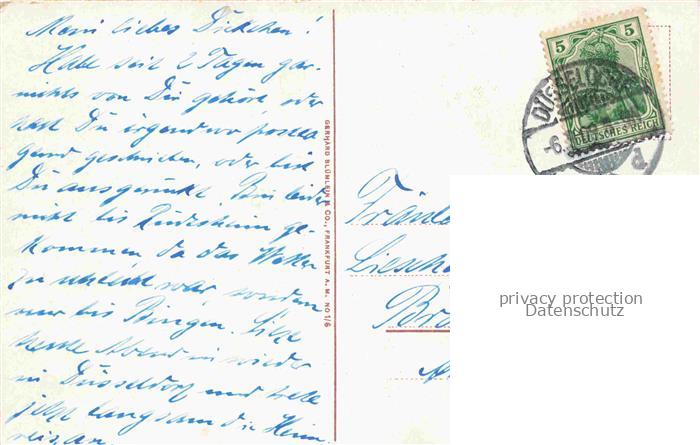 Mein liebes Dickchen!
Habe seit 2 Tagen gar-
nichts von Dir gehört, oder
hast Du irgendwo postla-
gernd geschrieben, oder bist
Du ausgerückt. Bin leider
nicht bis Rüdesheim ge-
kommen, da das Wetter
zu schlecht war, sondern
nur bis Bingen.
heute Abend in wieder
in Düsseldorf und trete
jetzt langsam die Heim-
reise an.
GERHARD BLÜMLEIN & CO., FRANKFURT A. M. NO 1/6
5 5
DEUTSCHES REICH
DÜSSELDORF
-6.
d
Fräulein
Liesch
Br
privacy protection
Datenschutz